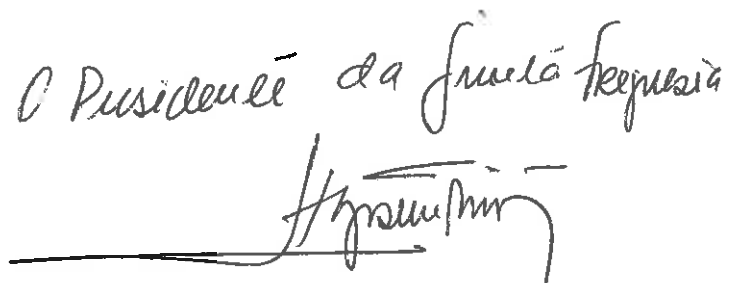 O Presidente da Junta Freguesia